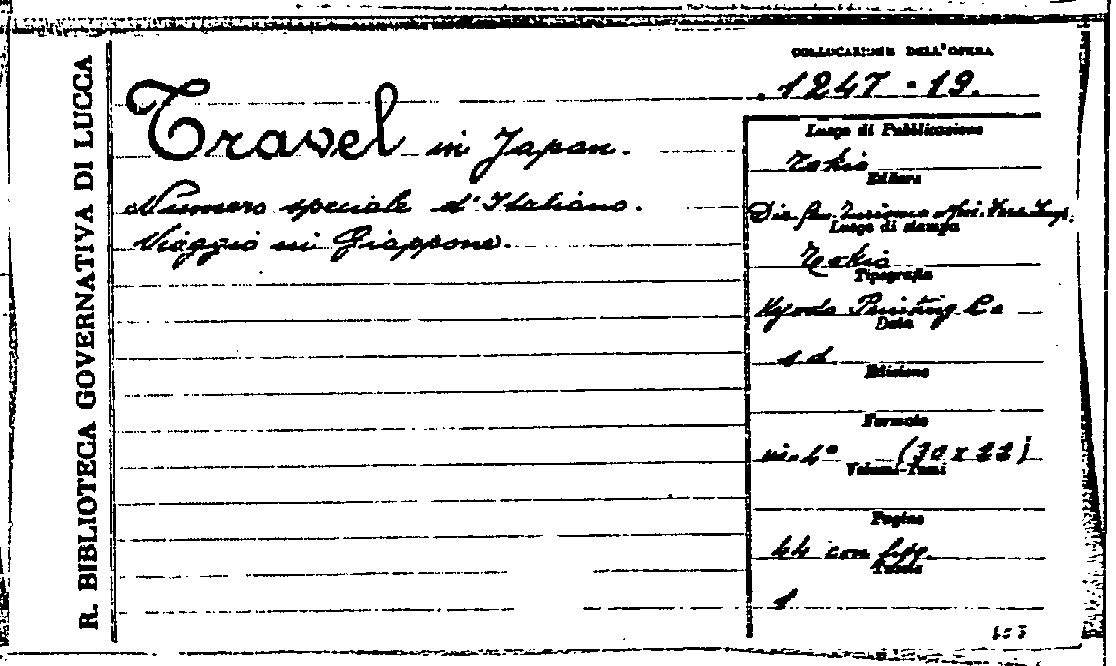 R. BIBLIOTECA GOVERNATIVA DI LUCCA
Travel in Japan.
Numero speciale d'Italiano.
Viaggio in Giappone.
COLLOCAZIONE DELL'OPERA
1247-19.
Luogo di Pubblicazione
Tokio
Editore
Luogo di stampa
Tokio
Tipografia
Kyodo Printing Co
Data
s d
Edizione
Formato
in-4° (30 x 22)
Volumi-Tomi
Pagine
44 con figg.
Tavole
1